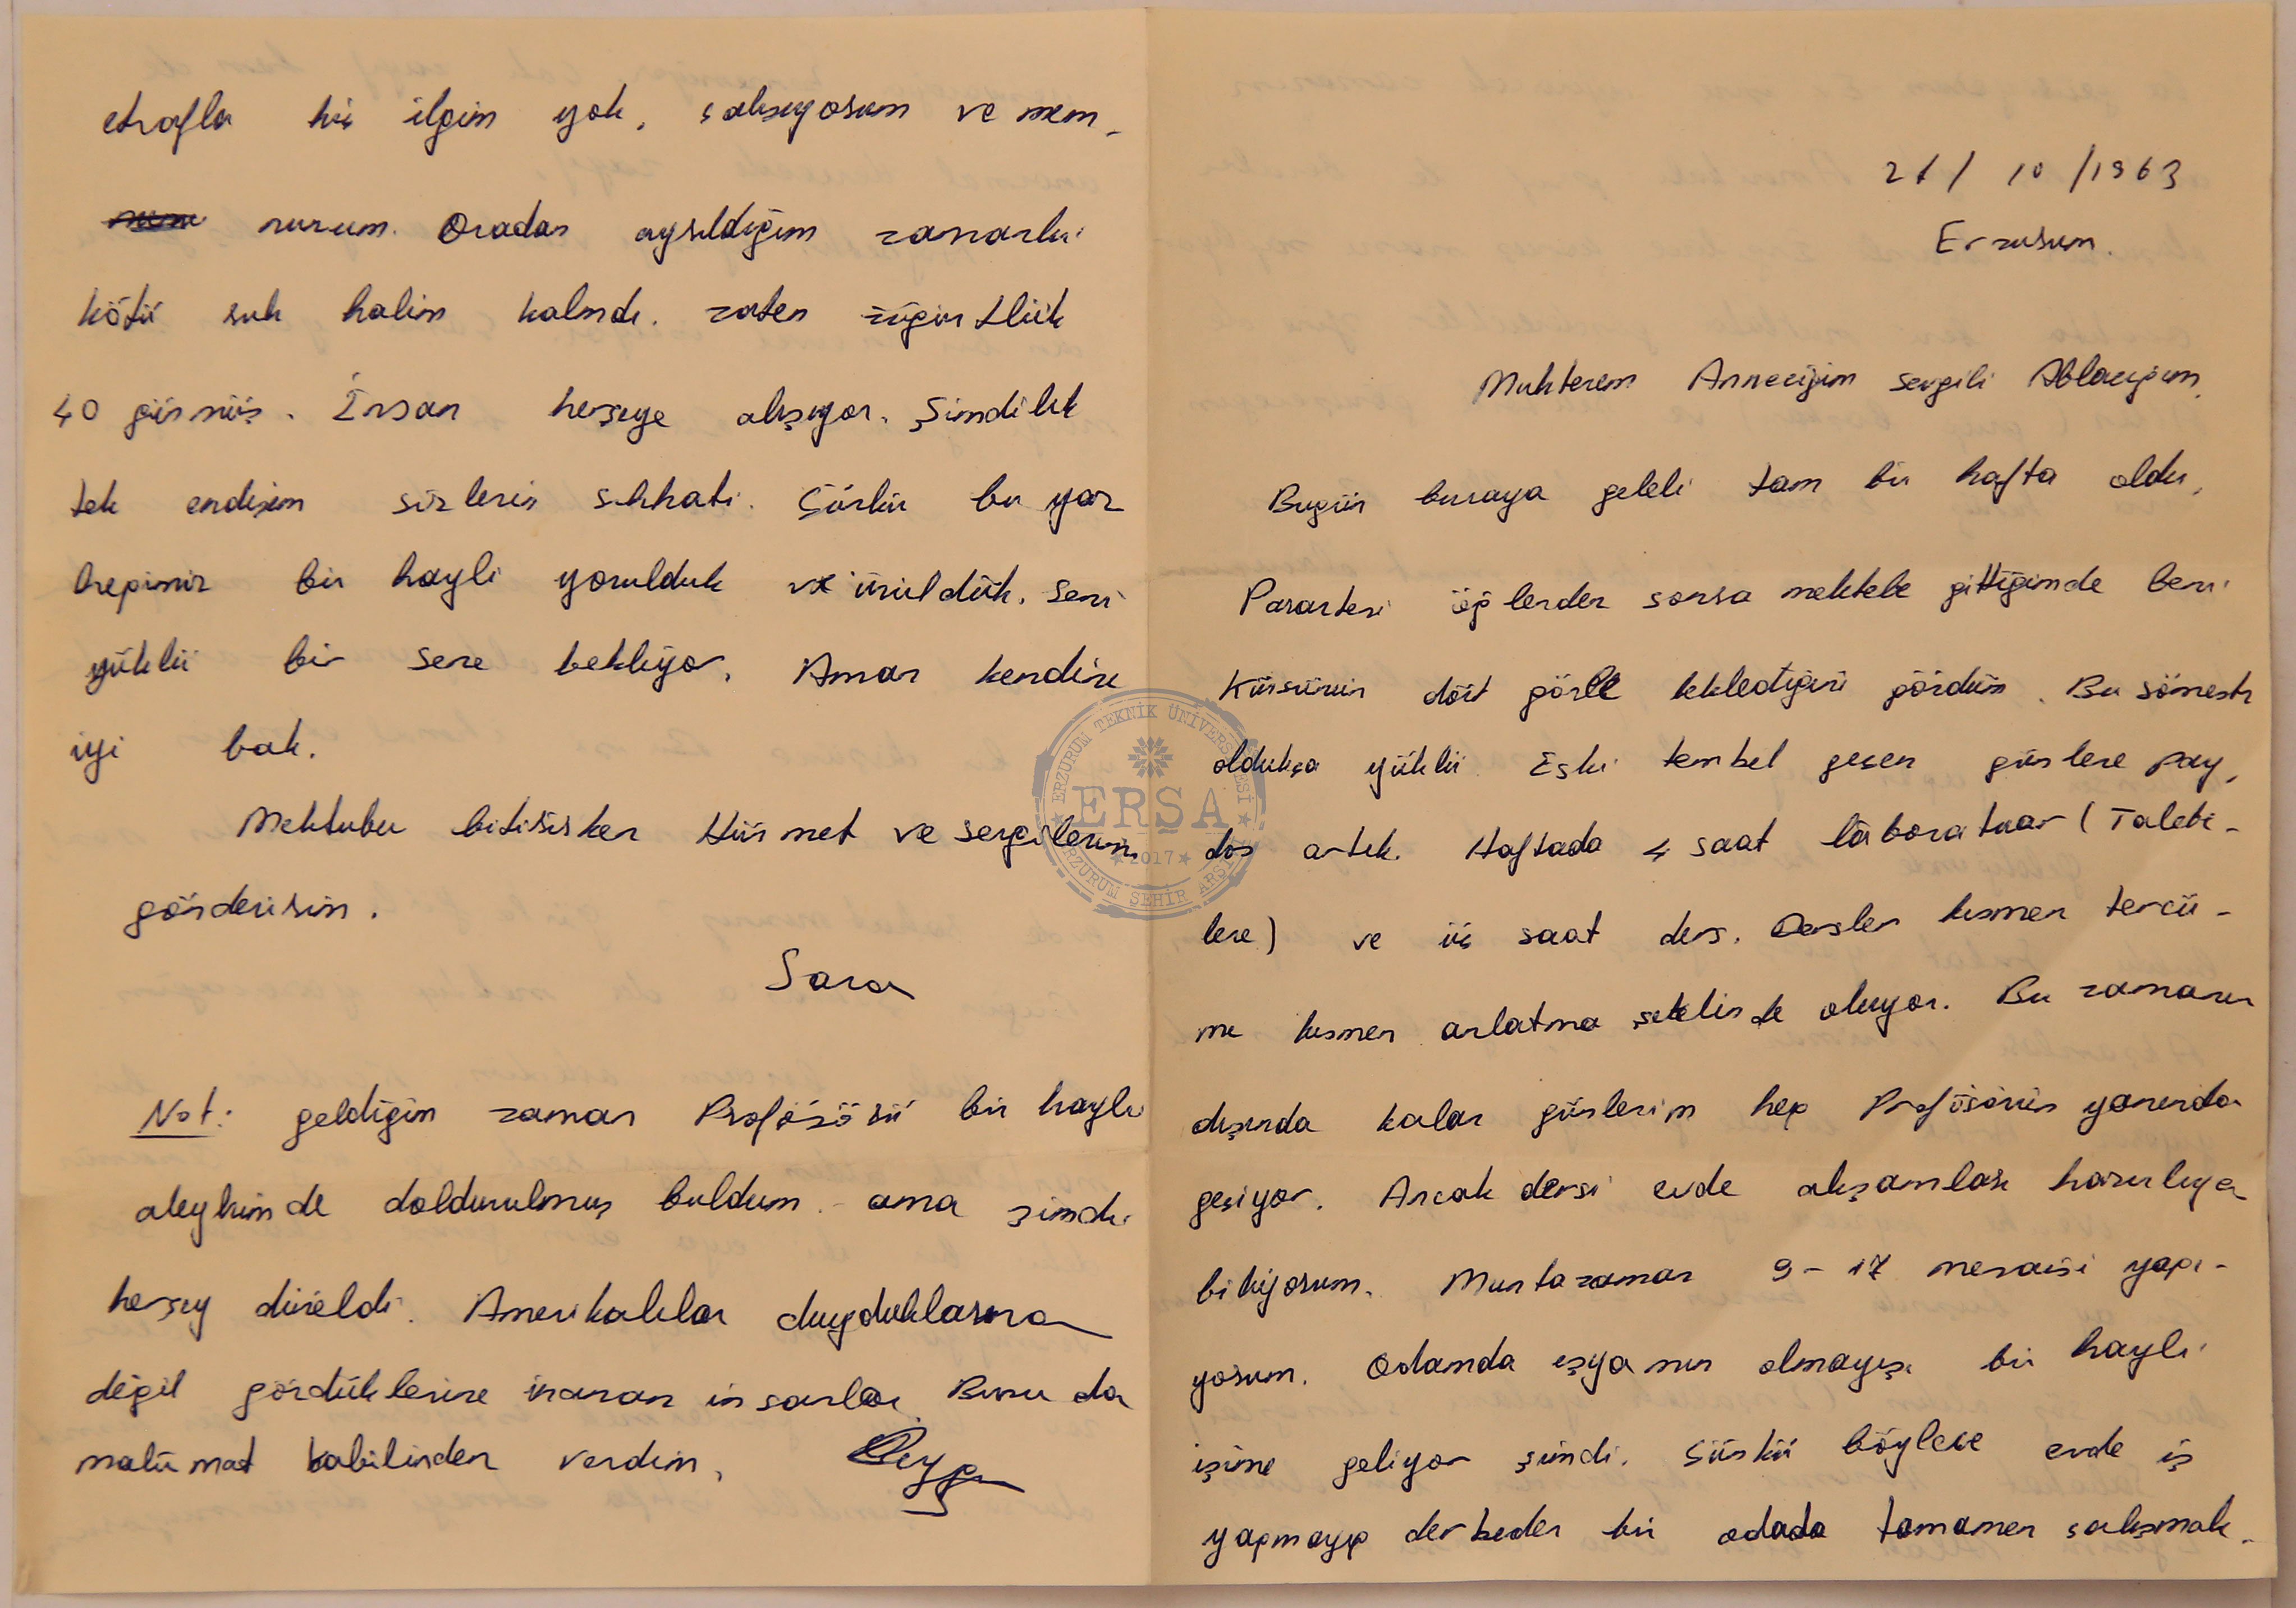 21/10/1963
Erzurum.
Muhterem Anneciğim sevgili Ablacığım,
Bugün buraya geleli tam bir hafta oldu,
Pazartesi öğlenden sonra mektebe gittiğimde beni
Kürsünün dört gözle beklediğini gördüm. Bu sömestr
oldukça yüklü. Eski tembel geçen günlere pay-
dos artık. Haftada 4 saat lâboratuar (Talebe-
lere) ve üç saat ders. Dersler kısmen tercü-
me kısmen anlatma şeklinde oluyor. Bu zamanın
dışında kalan günlerim hep Profösörün yanında
geçiyor. Ancak dersi evde akşamları hazırlıya
biliyorum. Muntazaman 9-17 mesaisi yapı-
yorum. Odamda eşyanın olmayışı bir hayli
işime geliyor şimdi. Çünkü böylece evde iş
yapmayıp derbeder bir odada tamamen çalışmak-
etrafla hiç ilgim yok, çalışıyorum ve mem-
nunum. Oradan ayrıldığım zamanki
kötü ruh halim kalmdı. zaten züğürtlük
40 günmüş. İnsan herşeye alışıyor. Şimdilik
tek endişem sizlerin sıhhati. Çünkü bu yaz
hepimiz bir hayli yorulduk ve üzüldük. Seni
yüklü bir sene bekliyor. Aman kendine
iyi bak.
Mektubu bitirirken Hürmet ve sevgilerimi
gönderirim.
Sara
Not: geldiğim zaman Profösörü bir hayli
aleyhimde doldurulmuş buldum. ama şimdi
herşey düzeldi. Amerikalılar duyduklarına
değil gördüklerine inanan insanlar. Bunu da
malümat kabilinden verdim.
ERZURUM TEKNİK ÜNİVERSİTESİ
ERŞA
2017
ERZURUM ŞEHİR ARŞİVİ